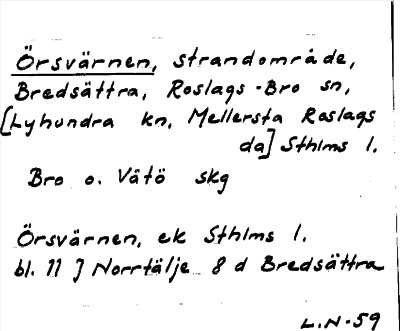 Örsvärnen, strandområde,
Bredsättra, Roslags-Bro sn,
[Lyhundra kn, Mellersta Roslags
da] Sthlms l.
Bro o. Vätö skg
Örsvärnen, ek Sthlms l.
bl. 11 J Norrtälje 8 d Bredsättra
L.N-59